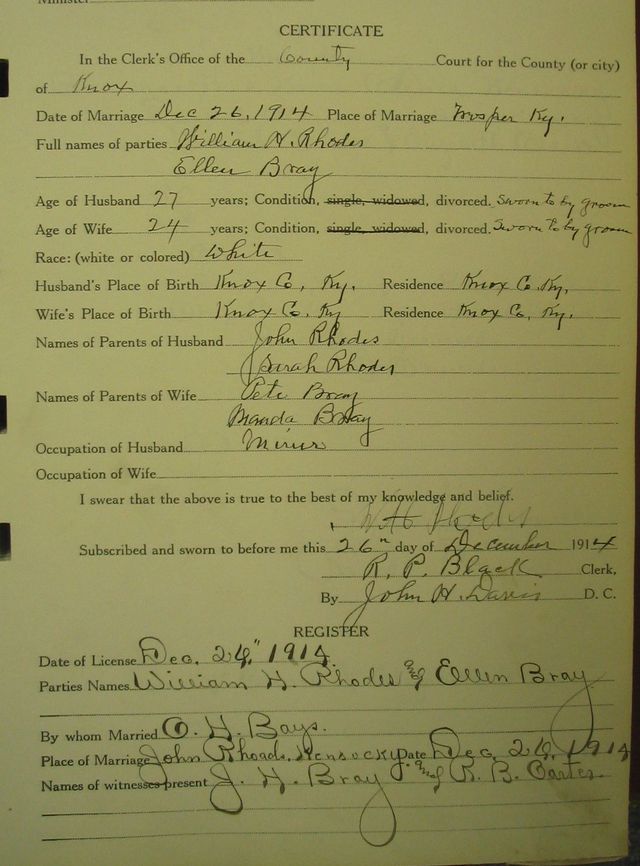 CERTIFICATE
In the Clerk's Office of the County Court for the County (or city)
of Knox
Date of Marriage Dec 26, 1914 Place of Marriage Trosper Ky.
Full names of parties William H. Rhodes
Ellen Bray
Age of Husband 27 years; Condition, single, widowed, divorced. Sworn to by groom
Age of Wife 24 years; Condition, single, widowed, divorced. Sworn to by groom
Race: (white or colored) White
Husband's Place of Birth Knox Co, Ky. Residence Knox Co. Ky.
Wife's Place of Birth Knox Co. Ky Residence Knox Co, Ky.
Names of Parents of Husband John Rhodes
Sarah Rhodes
Names of Parents of Wife Pete Bray
Manda Bray
Occupation of Husband Miner
Occupation of Wife
I swear that the above is true to the best of my knowledge and belief.
Rhodes
Subscribed and sworn to before me this 26" day of December 1914
R. P. Black Clerk,
By John H. Davis D. C.
REGISTER
Date of License Dec, 26," 1914
Parties Names William H. Rhodes and Ellen Bray
By whom Married O. H. Bays.
Place of Marriage John Rhoads, Date Dec, 26, 1914
Names of witnesses present J. H. Bray and R. B. Carter